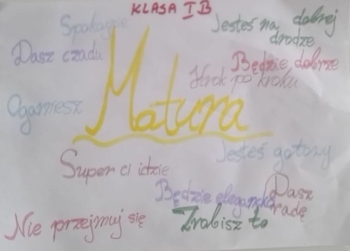 KLASA I B
Spokojnie
Jesteś na dobrej
drodze
Dasz czadu
Będzie dobrze
Krok po kroku
Ogarniesz
Matura
Jesteś gotowy
Super ci idzie
Będzie elegancko
Dasz
radę
Nie przejmuj się
Zrobisz to